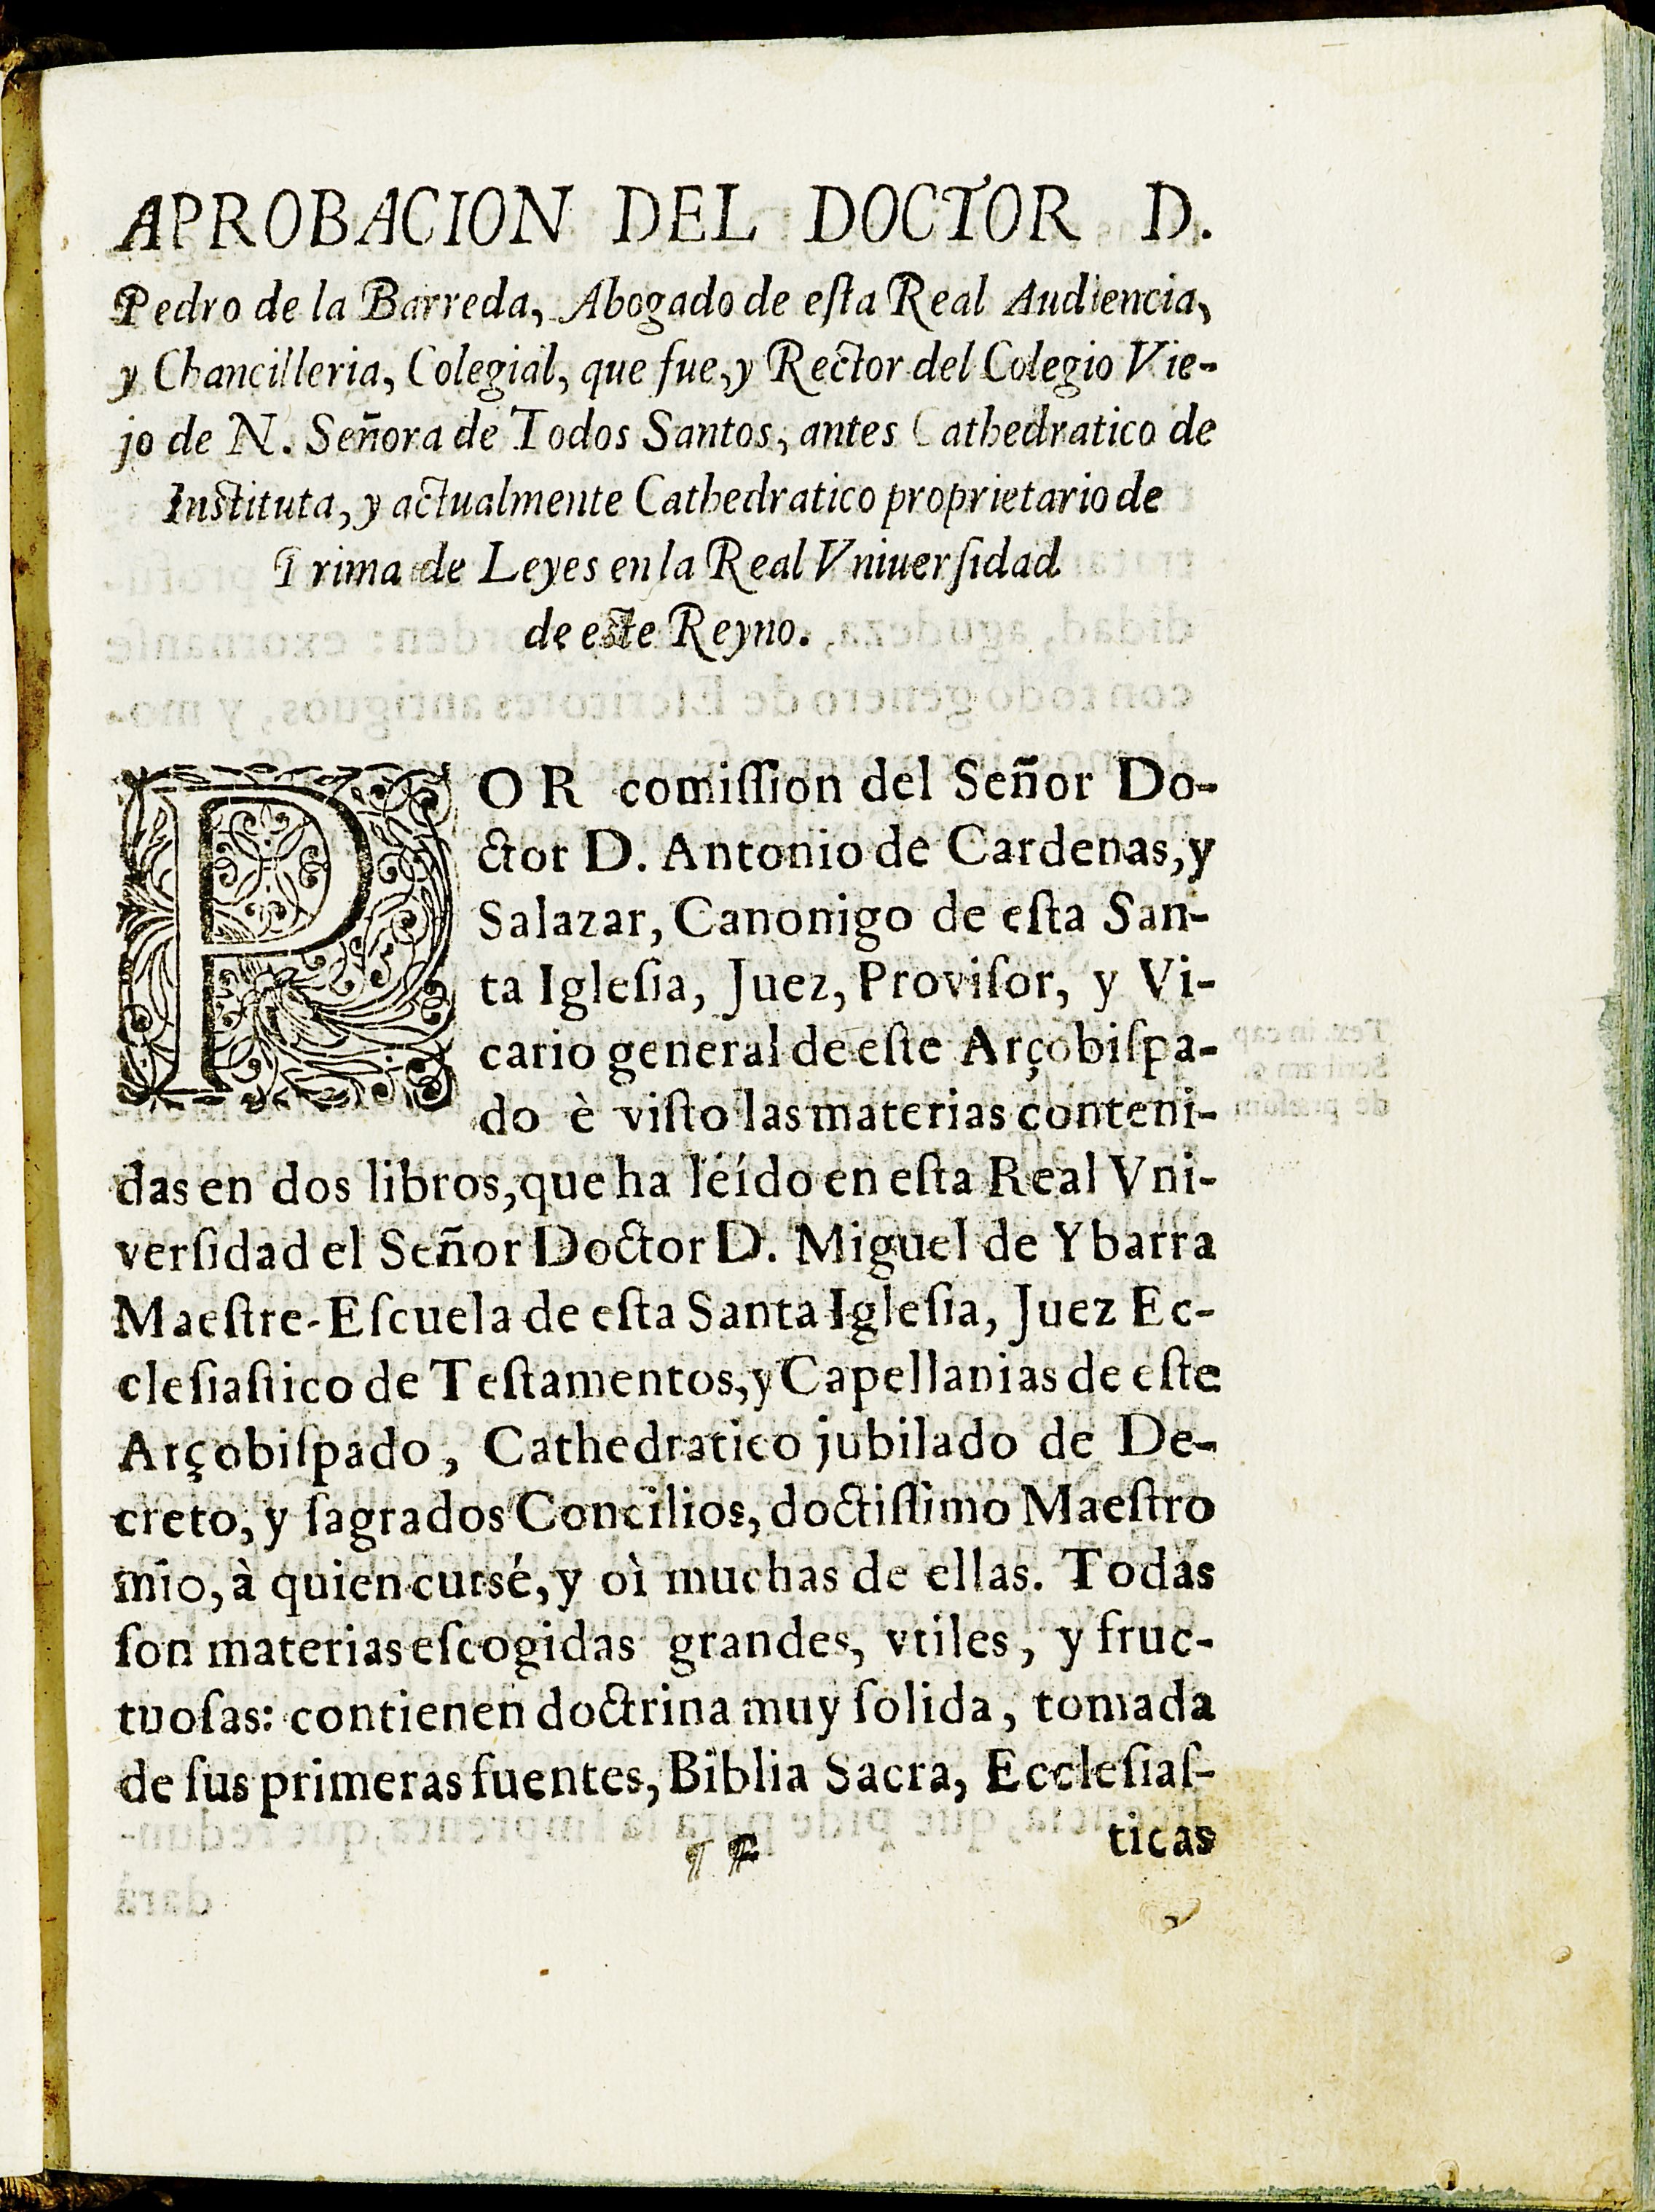 APROBACION DEL DOCTOR D.
Pedro de la Barreda, Abogado de eſta Real Audiencia,
y Chancilleria, Colegial, que fue, y Rector del Colegio Vie-
jo de N. Señora de Todos Santos, antes Cathedratico de
Instituta, y actualmente Cathedratico proprietario de
Prima de Leyes en la Real Vniuerſidad
de este Reyno.
POR comiſſion del Señor Do-
ctor D. Antonio de Cardenas, y
Salazar, Canonigo de eſta San-
ta Igleſia, Juez, Proviſor, y Vi-
cario general de eſte Arçobiſpa-
do è viſto las materias conteni-
das en dos libros, que ha leído en eſta Real Vni-
verſidad el Señor Doctor D. Miguel de Ybarra
Maeſtre-Eſcuela de eſta Santa Igleſia, Juez Ec-
cleſiaſtico de Teſtamentos, y Capellanias de eſte
Arçobiſpado, Cathedratico jubilado de De-
creto, y ſagrados Concilios, doctiſſimo Maeſtro
mio, à quien cursé, y oì muchas de ellas. Todas
ſon materias eſcogidas grandes, vtiles, y fruc-
tuoſas: contienen doctrina muy ſolida, tomada
de ſus primeras fuentes, Biblia Sacra, Eccleſiaſ-
¶ ¶ ticas